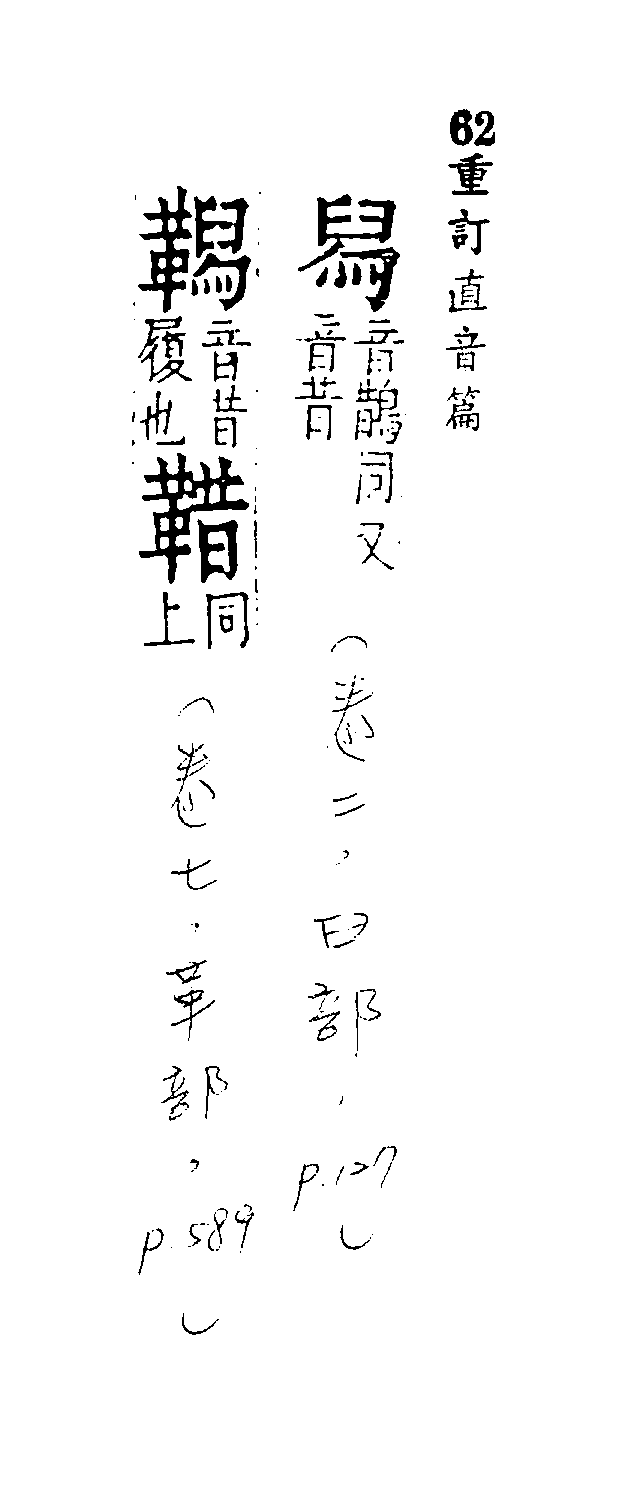 62重訂直音篇
舄音鵲同又音昔（卷二，臼部，p.127）
音昔履也同上（卷七，革部，p.589）